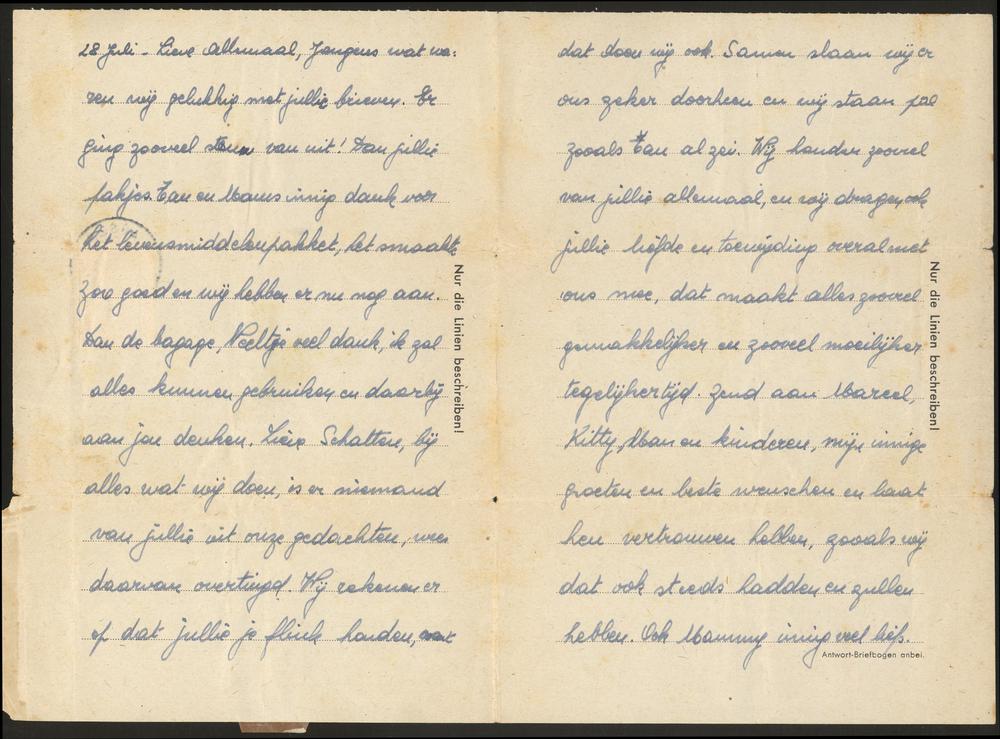 28 Juli - Lieve Allemaal, Jongens wat wa:
ren wij gelukkig met jullie brieven. Er
ging zooveel steun van uit! Dan jullie
pakjes. Han en Mams innig dank voor
het levensmiddelenpakket, het smaakte
zoo goed en wij hebben er nu nog aan.
Dan de bagage, Neeltje veel dank, ik zal
alles kunnen gebruiken en daarbij
aan jou denken. Lieve Schatten, bij
alles wat wij doen, is er niemand
van jullie uit onze gedachten, wees
daarvan overtuigd. Wij rekenen er
op dat jullie je flink houden, want
Nur die Linien beschreiben!
dat doen wij ook. Samen slaan wij er
ons zeker doorheen en wij staan pal
zooals Han al zei. Wij houden zooveel
van jullie allemaal, en wij dragen ook
jullie liefde en toewijding overal met
ons mee, dat maakt alles zooveel
gemakkelijker en zooveel moeilijker
tegelijkertijd. Zend aan Marcel,
Kitty, Man en kinderen, mijn innige
groeten en beste wenschen en laat
hen vertrouwen hebben, zooals wij
dat ook steeds hadden en zullen
hebben. Ook Mammy innig veel liefs.
Nur die Linien beschreiben!
Antwort-Briefbogen anbei.